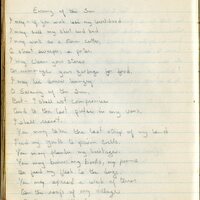 Enemy of the Sun
I may - if you wish lose my livelihood
I may sell my shirt and bed
I may work as a stone cutter,
A street sweeper, a porter.
I may clean your stores
Or rummage your garbage for food.
I may lie down hungry
O Enemy of the Sun,
But - I shall not compromise
And to the last pulse in my veins
I shall resist.
You may take the last strip of my land
Feed my youth to prison cells.
You may plunder my heritage
You may burn my books, my poems
Or feed my flesh to the dogs.
You may spread a web of terror
On the roofs of my village